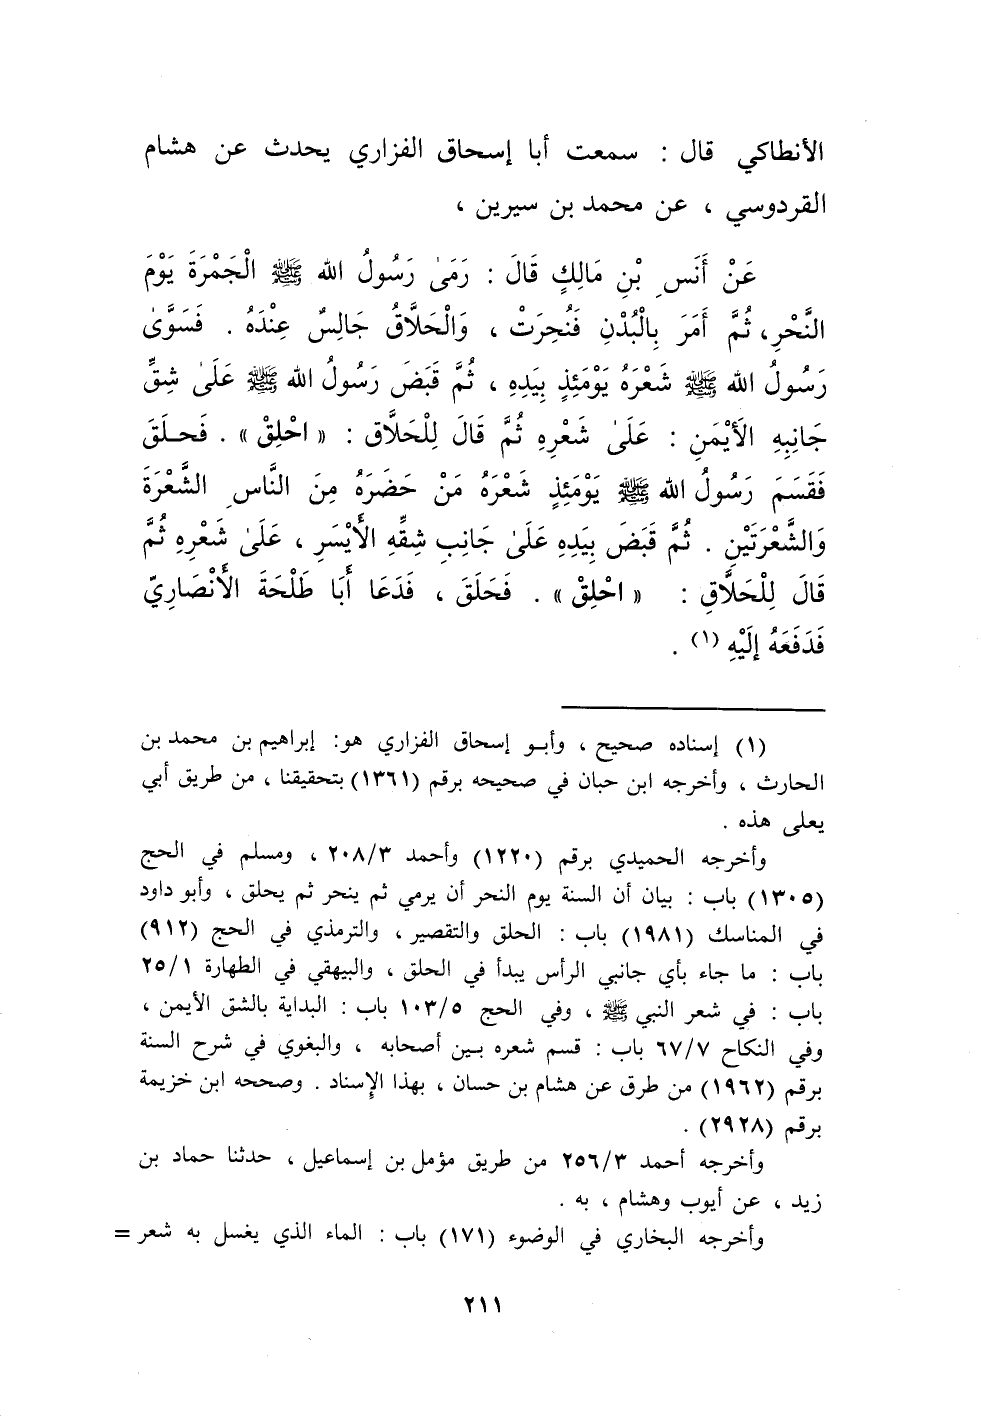 الأنطاكي قال : سمعت أبا إسحاق الفزاري يحدث عن هشام
القردوسي ، عن محمد بن سيرين ،
عَنْ أَنَسِ بْنِ مَالِكٍ قَالَ : رَمَىٰ رَسُولُ الله ﷺ الْجَمْرَةَ يَوْمَ
النَّحْرِ، ثُمَّ أَمَرَ بِالْبُدْنِ فَنُحِرَتْ ، وَالْحَلَّاقُ جَالِسٌ عِنْدَهُ . فَسَوَّىٰ
رَسُولُ الله ﷺ شَعْرَهُ يَوْمَئِذٍ بِيَدِهِ ، ثُمَّ قَبَضَ رَسُولُ الله ﷺ عَلَىٰ شِقِّ
جَانِبِهِ الأَيْمَنِ : عَلَىٰ شَعْرِهِ ثُمَّ قَالَ لِلْحَلَّاقِ : « احْلِقْ » . فَحلَقَ
فَقَسَمَ رَسُولُ الله ﷺ يَوْمَئِذٍ شَعْرَهُ مَنْ حَضَرَهُ مِنَ النَّاسِ الشَّعْرَةَ
وَالشَّعْرَتَيْنِ . ثُمَّ قَبَضَ بِيَدِهِ عَلَىٰ جَانِبِ شِقِّهِ الأَيْسَرِ ، عَلَىٰ شَعْرِهِ ثُمَّ
قَالَ لِلْحَلَّاقِ : « احْلِقْ » . فَحَلَقَ ، فَدَعَا أَبَا طَلْحَةَ الأَنْصَارِيّ
فَدَفَعَهُ إِلَيْهِ (١) .
(١) إسناده صحيح ، وأبو إسحاق الفزاري هو: إبراهيم بن محمد بن
الحارث ، وأخرجه ابن حبان في صحيحه برقم (١٣٦١) بتحقيقنا ، من طريق أبي
يعلى هذه .
وأخرجه الحميدي برقم (١٢٢٠) وأحمد ٢٠٨/٣ ، ومسلم في الحج
(١٣٠٥) باب : بيان أن السنة يوم النحر أن يرمي ثم ينحر ثم يحلق ، وأبو داود
في المناسك (١٩٨١) باب : الحلق والتقصير ، والترمذي في الحج (٩١٢)
باب : ما جاء بأي جانبي الرأس يبدأ في الحلق ، والبيهقي في الطهارة ٢٥/١
باب : في شعر النبي ﷺ ، وفي الحج ١٠٣/٥ باب : البداية بالشق الأيمن ،
وفي النكاح ٦٧/٧ باب : قسم شعره بين أصحابه ، والبغوي في شرح السنة
برقم (١٩٦٢) من طرق عن هشام بن حسان ، بهذا الإسناد . وصححه ابن خزيمة
برقم (٢٩٢٨) .
وأخرجه أحمد ٢٥٦/٣ من طريق مؤمل بن إسماعيل ، حدثنا حماد بن
زيد ، عن أيوب وهشام ، به .
وأخرجه البخاري في الوضوء (١٧١) باب : الماء الذي يغسل به شعر =
٢١١